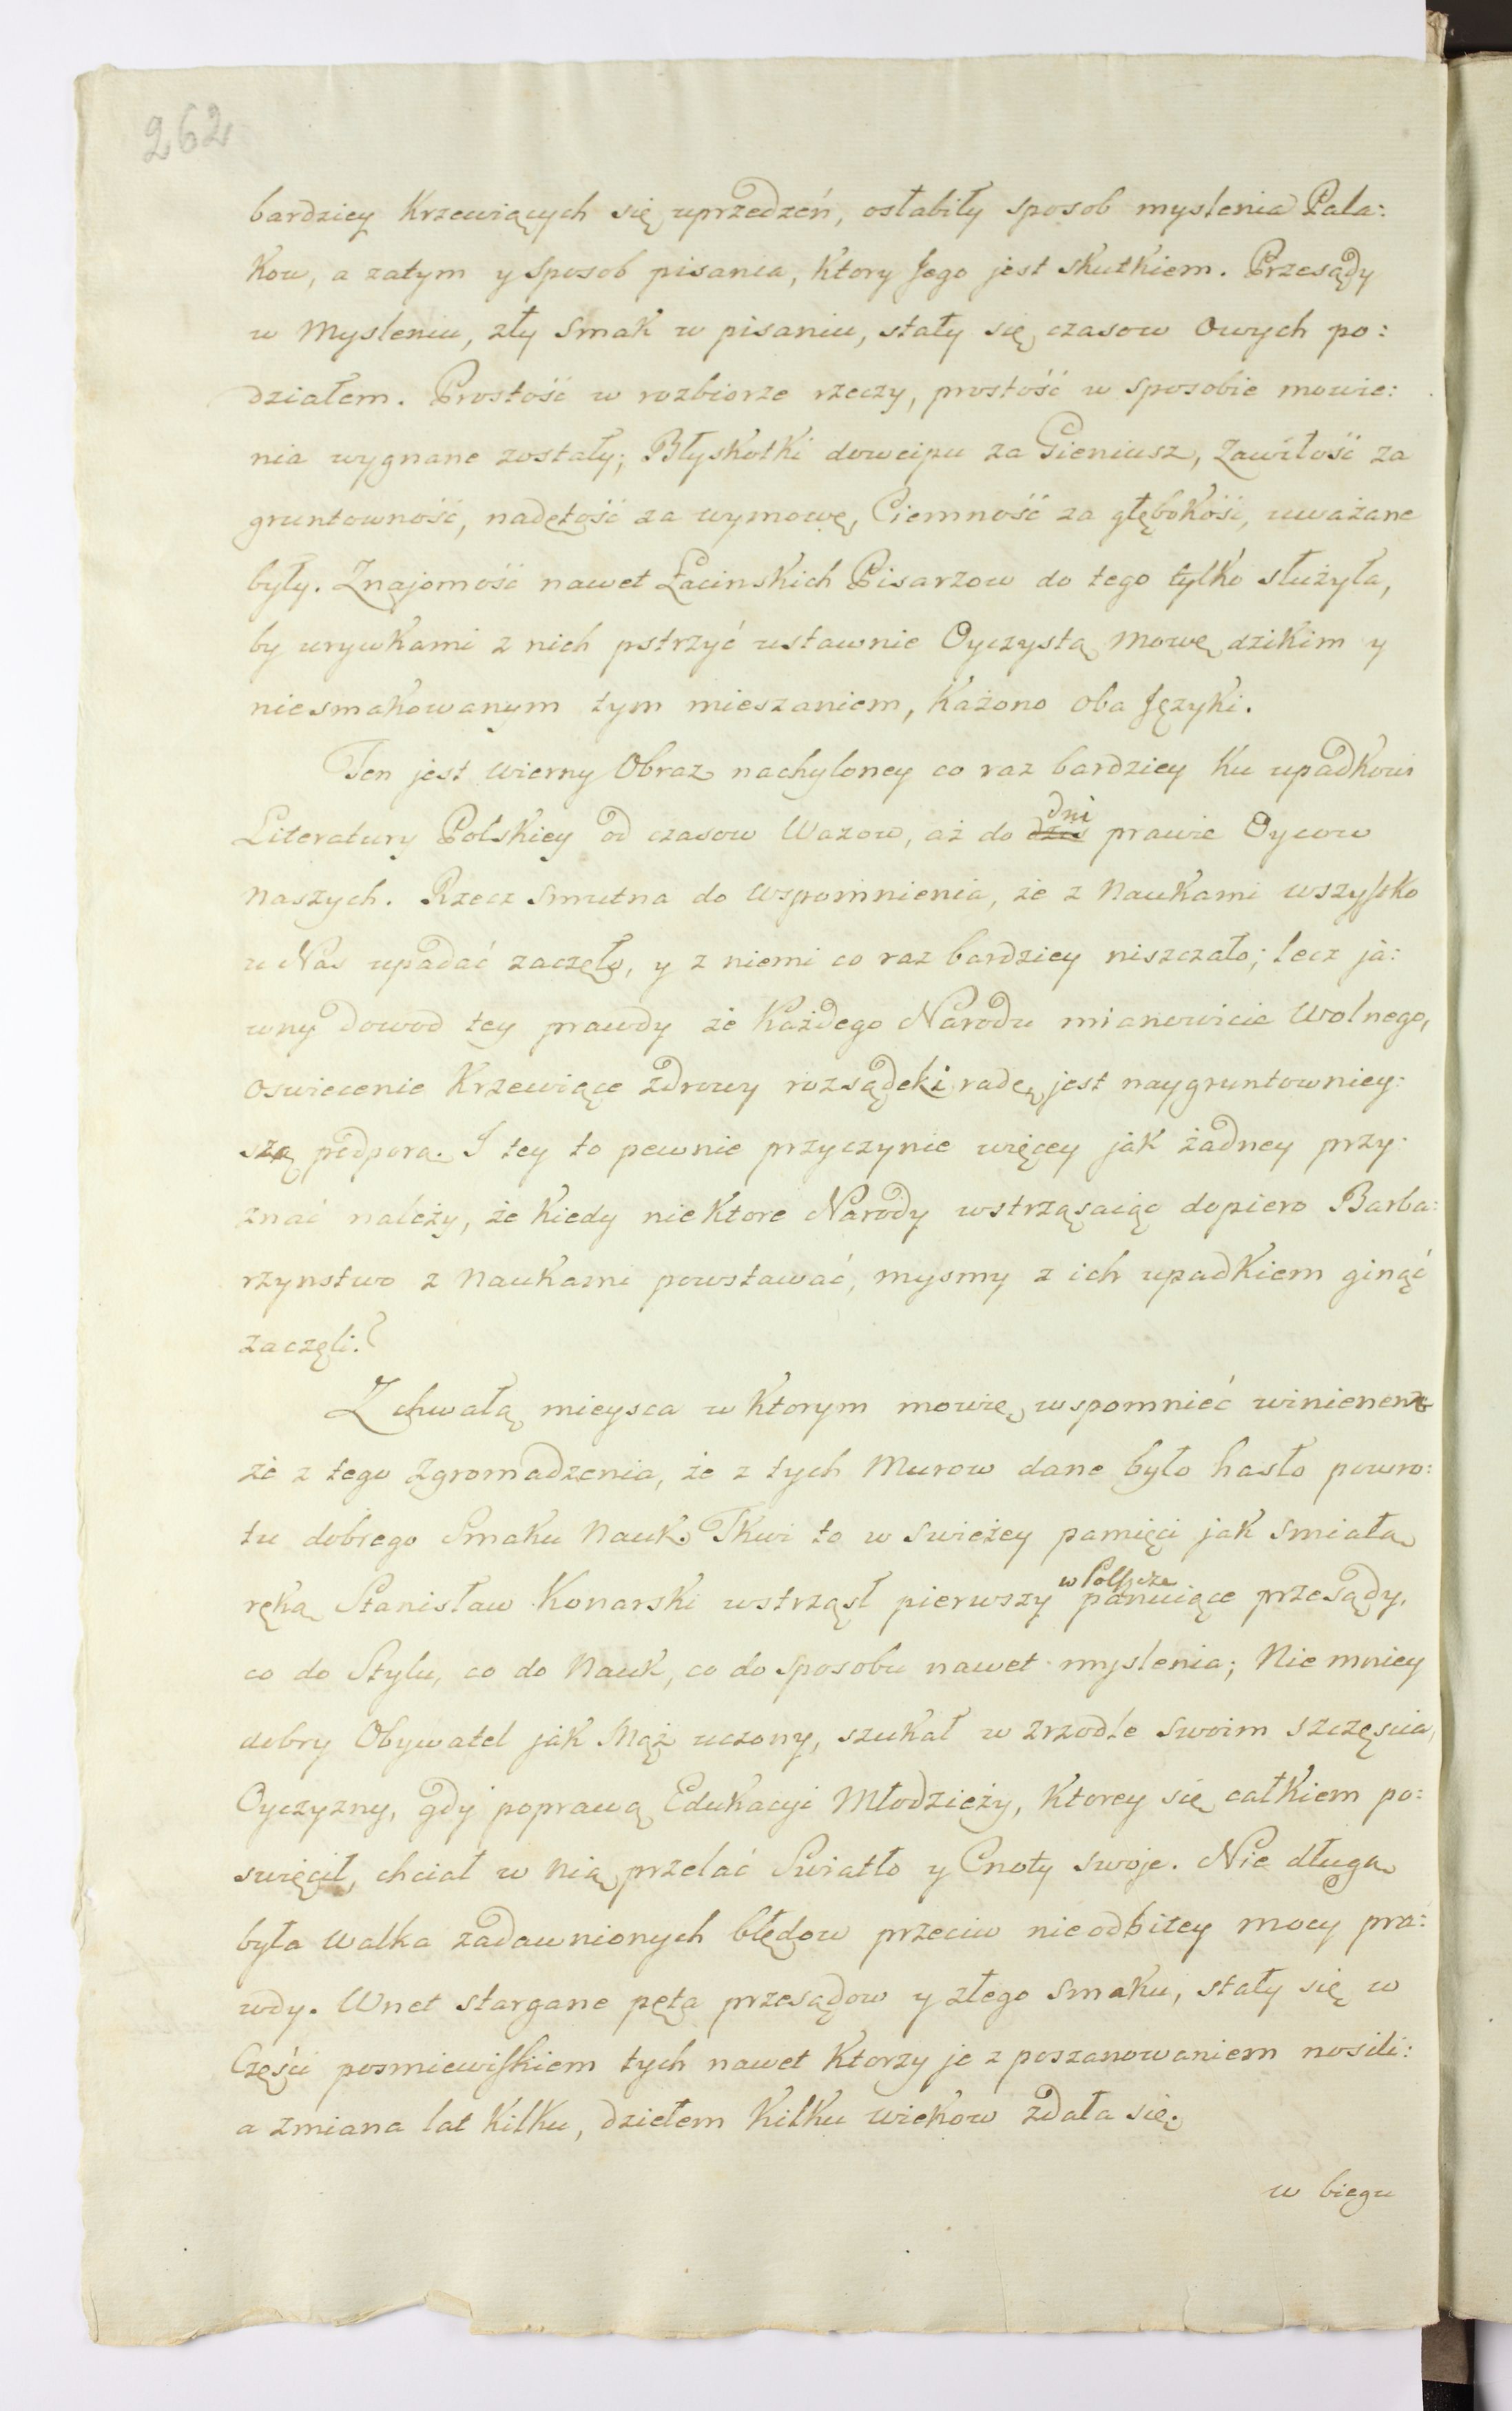 262
bardziey Krzewiących się uprzedzeń, osłabiły sposob myslenia Pola:
Kow, a zatym y sposob pisania, Ktory Jego jest skutkiem. Przesądy
w Mysleniu, zły Smak w pisaniu, stały się czasow Owych po:
działem. Prostość w rozbiorze rzeczy, prostość w sposobie mowie:
nia wygnane zostały; Błyskotki dowcipu za Gieniusz, Zawiłość za
gruntowność, nadętość za wymowę, Ciemność za głębokość, uważane
były. Znajomość nawet Łacinskich Pisarzow do tego tylko służyła,
by urywkami z nich pstrzyć ustawnie Oyczystą mowę dzikim y
niesmakowanym tym mieszaniem, Każono oba Języki.
Ten jest wierny Obraz nachyloney co raz bardziey Ku upadkowi
dni
Literatury Polskiey od czasow Wazow, aż do prawie Oycow
Naszych. Rzecz Smutna do Wspomnienia, że z Naukami wszystko
u Nas upadać zaczęło, y z niemi co raz bardziey niszczało; lecz ja:
wny dowod tey prawdy że Każdego Narodu mianowicie Wolnego,
oswiecenie Krzewiące zdrowy rozsądek i radę, jest naygruntowniey:
szą podporą. I tey to pewnie przyczynie więcey jak żadney przy:
znać należy, że Kiedy nieKtore Narody wstrząsaiąc dopiero Barba:
rzynstwo z Naukami powstawać, mysmy z ich upadkiem ginąć
zaczęli?
Z chwałą mieysca w Ktorym mowię, wspomnieć winienem
że z tego Zgromadzenia, że z tych Murow dane było hasło powro:
tu dobrego Smaku Nauk. Tkwi to w swieżey pamięci jak smiałą
w Polszcze
ręką Stanisław Konarski wstrząsł pierwszy panuiące przesądy,
co do Stylu, co do Nauk, co do sposobu nawet myslenia; Nie mniey
dobry Obywatel jak Mąż uczony, szukał w zrzodle swoim szczęscia,
Oyczyzny, gdy poprawą Edukacyi Młodzieży, Ktorey się całkiem po:
swięcił, chciał w nią przelać Swiatło y Cnoty swoje. Nie długa
była walka zadawnionych błędow przeciw nieodbitey mocy pra:
wdy. Wnet stargane pęta przesądow y złego smaku, stały się w
Części posmiewiskiem tych nawet Ktorzy je z poszanowaniem nosili:
a zmiana lat Kilku, dziełem Kilku wiekow zdała się.
w biegu